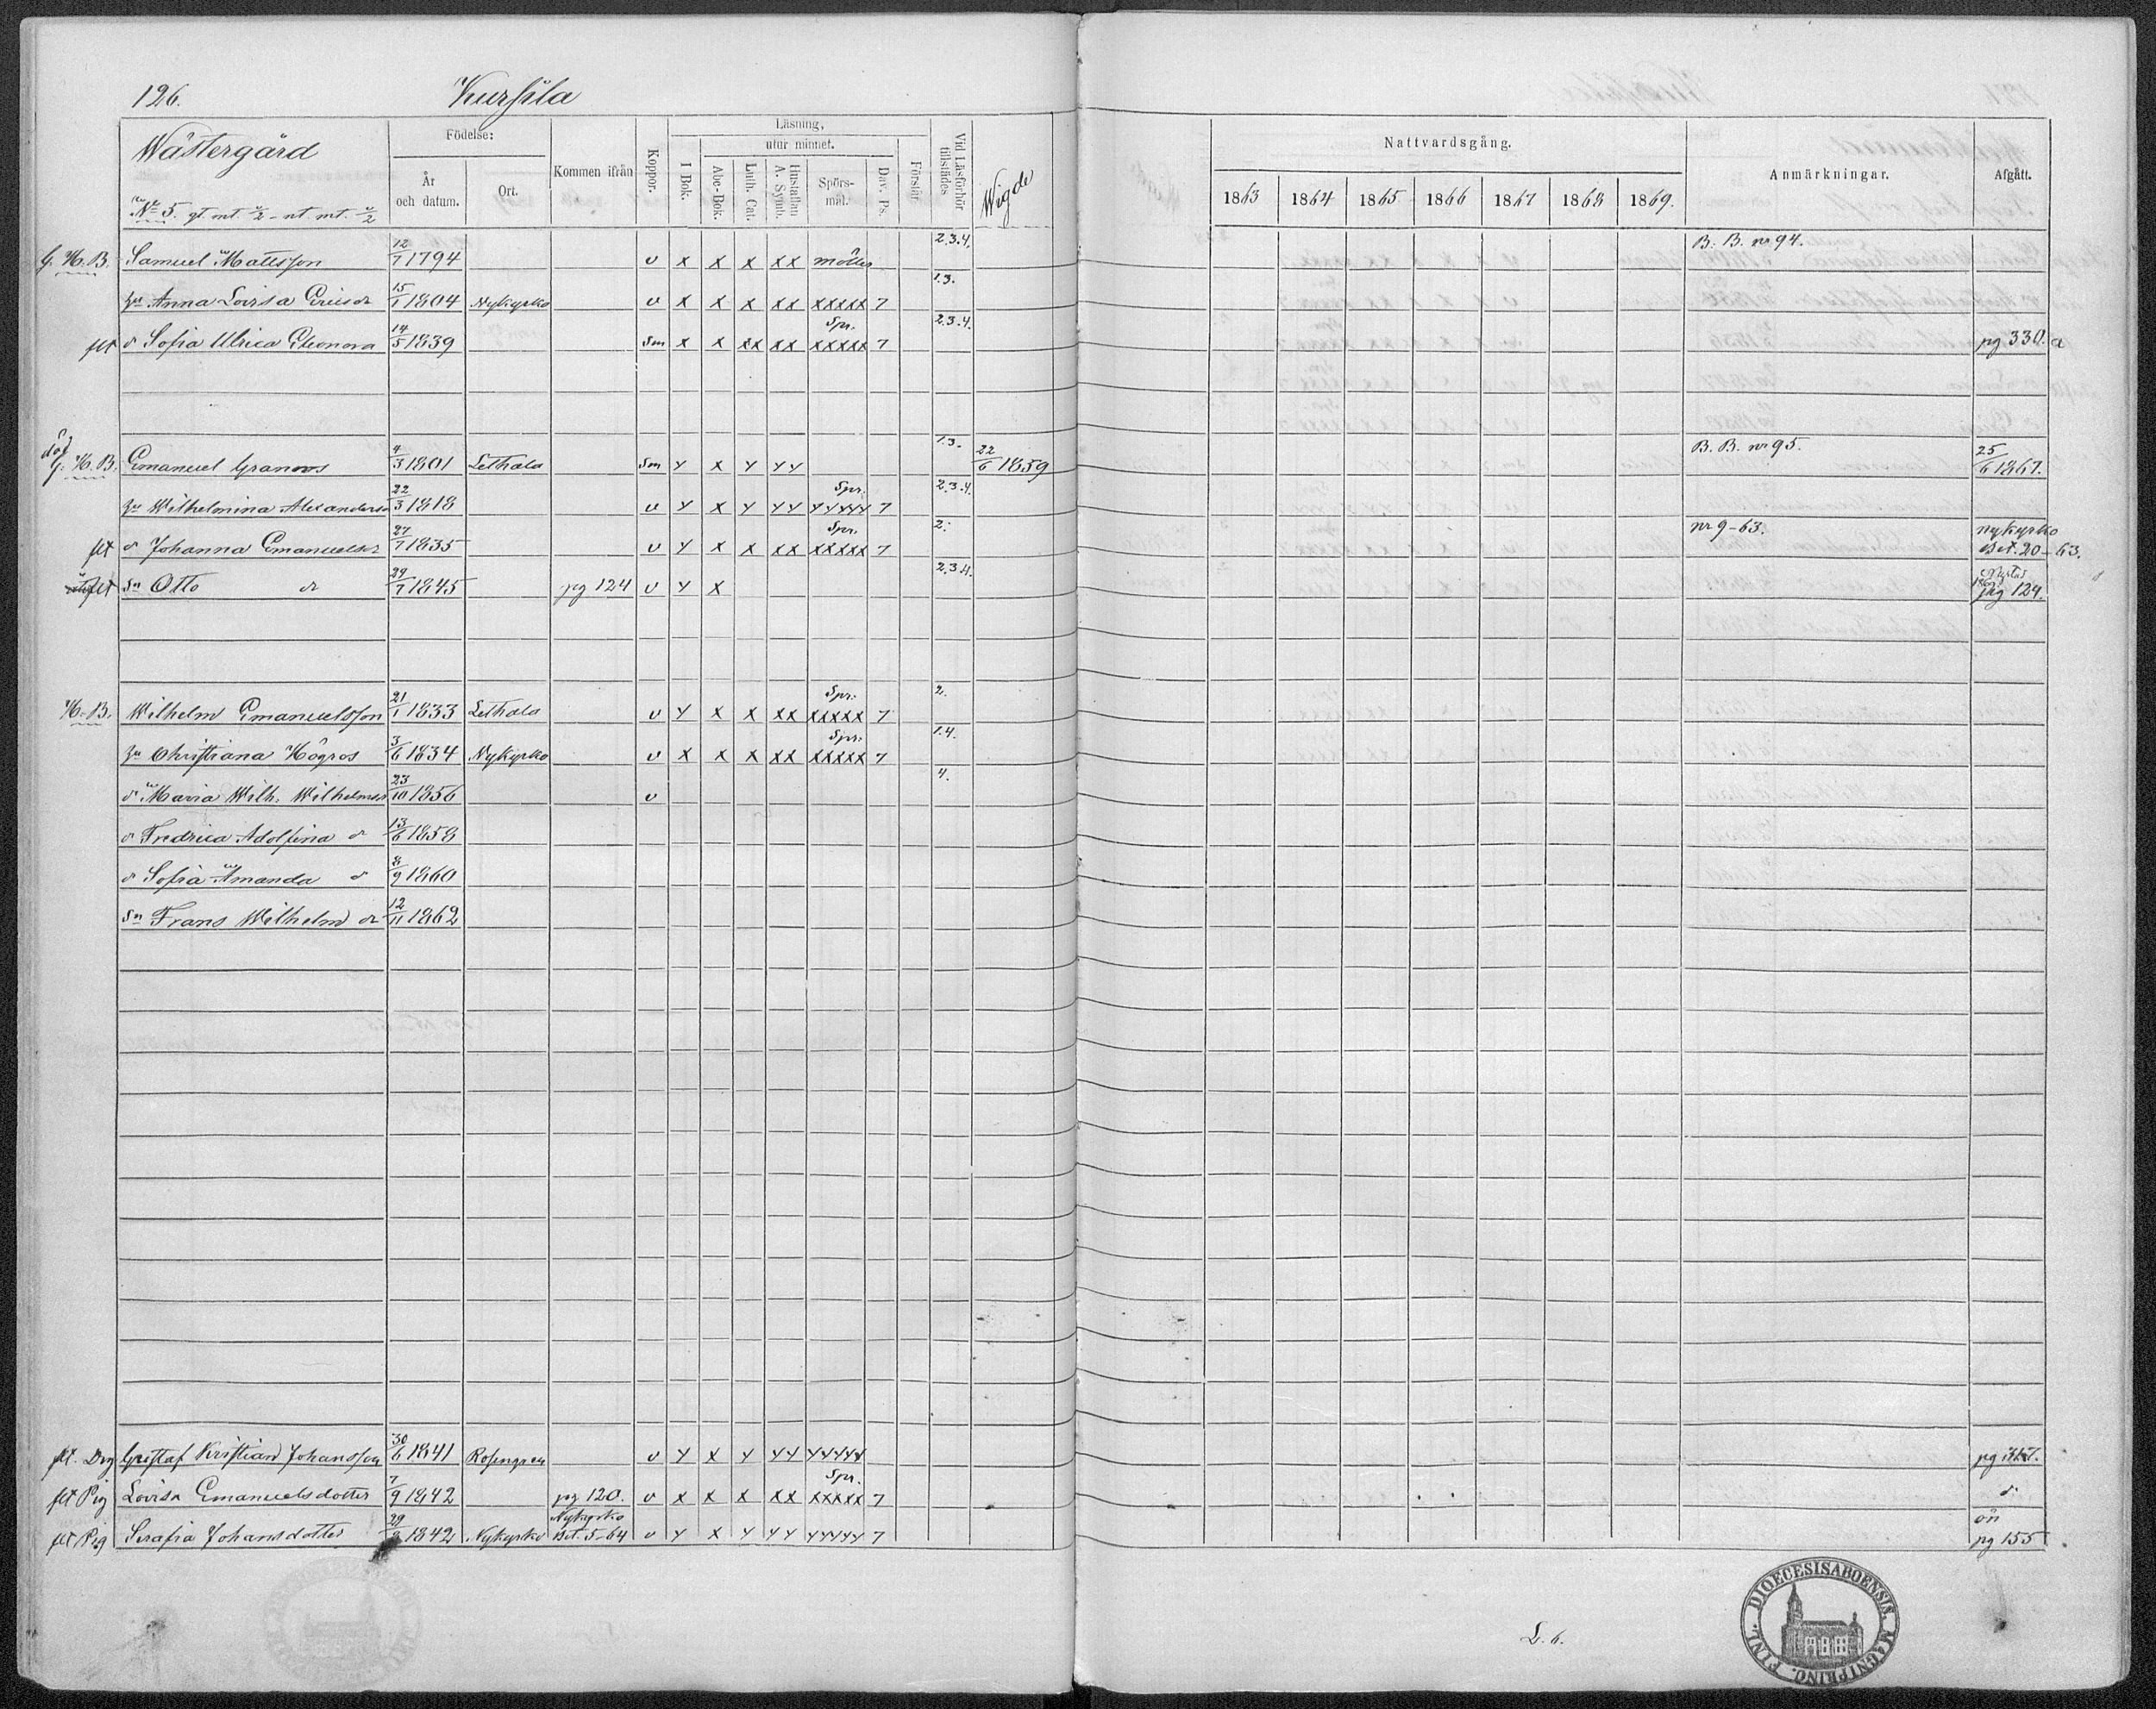 126. Kursila
Wästergård
No 5. gt mt 1/2 - nt mt 1/2
Födelse:
År och datum.
Ort.
Kommen ifrån
Koppor.
Läsning,
I Bok.
utur minnet.
Abc-Bok.
Luth. Cat.
Hustaflan A. Symb.
Spörsmål.
Dav. Ps.
Förstår
Vid Läsförhör tillstädes
Wigde
Nattvardsgång.
1863 1864 1865 1866 1867 1868 1869.
Anmärkningar.
Afgått.
G. H. B. Samuel Mattsson 12/7 1794 v x x x xx 2.3.4. B. B. nr 94.
hu Anna Lovisa Ericsdr 15/1 1804 Nykyrko v x x x xx xxxxx 7 1.3.
flt dr Sofia Ulrica Eleonora 14/5 1839 sm x x xx xx Spr. xxxxx 7 2.3.4. pg 330. a
död G. H. B. Emanuel Granroos 4/3 1801 Lethala sm y x y yy 1.3. 22/6 1859 B. B. nr 95. 25/6 1867.
hu Wilhelmina Alexandersdr 22/3 1818 v y x y yy Spr. yyyyy 7 2.3.4.
flt dr Johanna Emanuelsdr 27/7 1835 v y x x xx Spr. xxxxx 7 2. nr 9-63. Nykyrko Bet. 20-63.
flt sn Otto dr 29/7 1845 pg 124 v y x 2.3.4. Nystad pag 124.
H. B. Wilhelm Emanuelsson 21/1 1833 Lethala v y x x xx Spr. xxxxx 7 2.
hu Christiana Högros 3/6 1834 Nykyrko v x x x xx Spr. xxxxx 7 1.4.
dr Maria Wilh. Wilhelmsdr 23/10 1856 v 4.
dr Fredrica Adolfina dr 13/6 1858
dr Sofia Amanda dr 8/9 1860
sn Frans Wilhelm dr 12/11 1862
flt. Drg Gustaf Kristian Johansson 30/6 1841 Rosengren v y x y yy yyyyy
flt Pig Lovisa Emanuelsdotter 7/9 1842 pg 120. v x x x xx Spr. xxxxx 7
flt Pig Serafia Johansdotter 29/8 1842 Nykyrko Nykyrko Bet. 5-64 v y x y yy yyyyy 7 pg 155
L. 6.
DIOECESIS ABOENSIS. MAGNI PRINC. FINL.